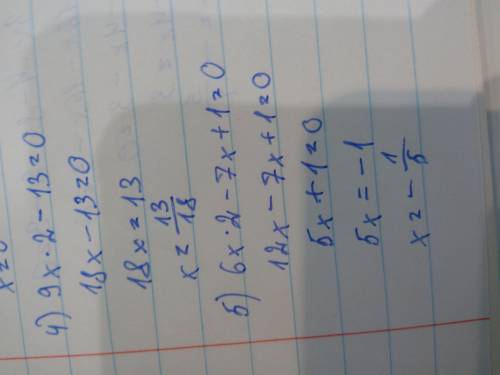 x=0
4) 9x·2-13=0
18x-13=0
18x=13
x=13/18
5) 6x·2-7x+1=0
12x-7x+1=0
5x+1=0
5x=-1
x=-1/5